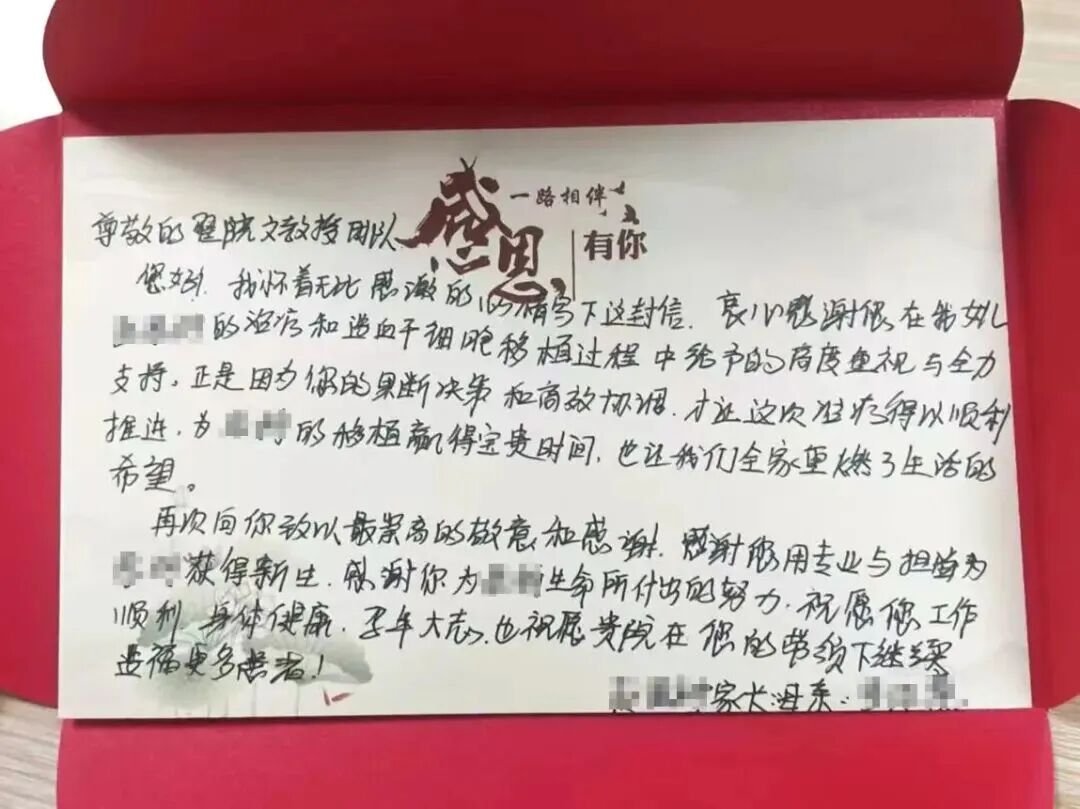 感恩
一路相伴
有你
尊敬的翟晓文教授团队
您好！我怀着无比感激的心情写下这封信，衷心感谢您在我女儿
的治疗和造血干细胞移植过程中给予的高度重视与全力
支持。正是因为你的果断决策和高效协调，才让这次治疗得以顺利
推进，为的移植赢得宝贵时间，也让我们全家重燃了生活的
希望。
再次向你致以最崇高的敬意和感谢，感谢您用专业与担当为
获得新生，感谢你为生命所付出的努力，祝愿您工作
顺利，身体健康，年大志，也祝愿贵院在您的带领下继续
造福更多患者！
家长母亲：